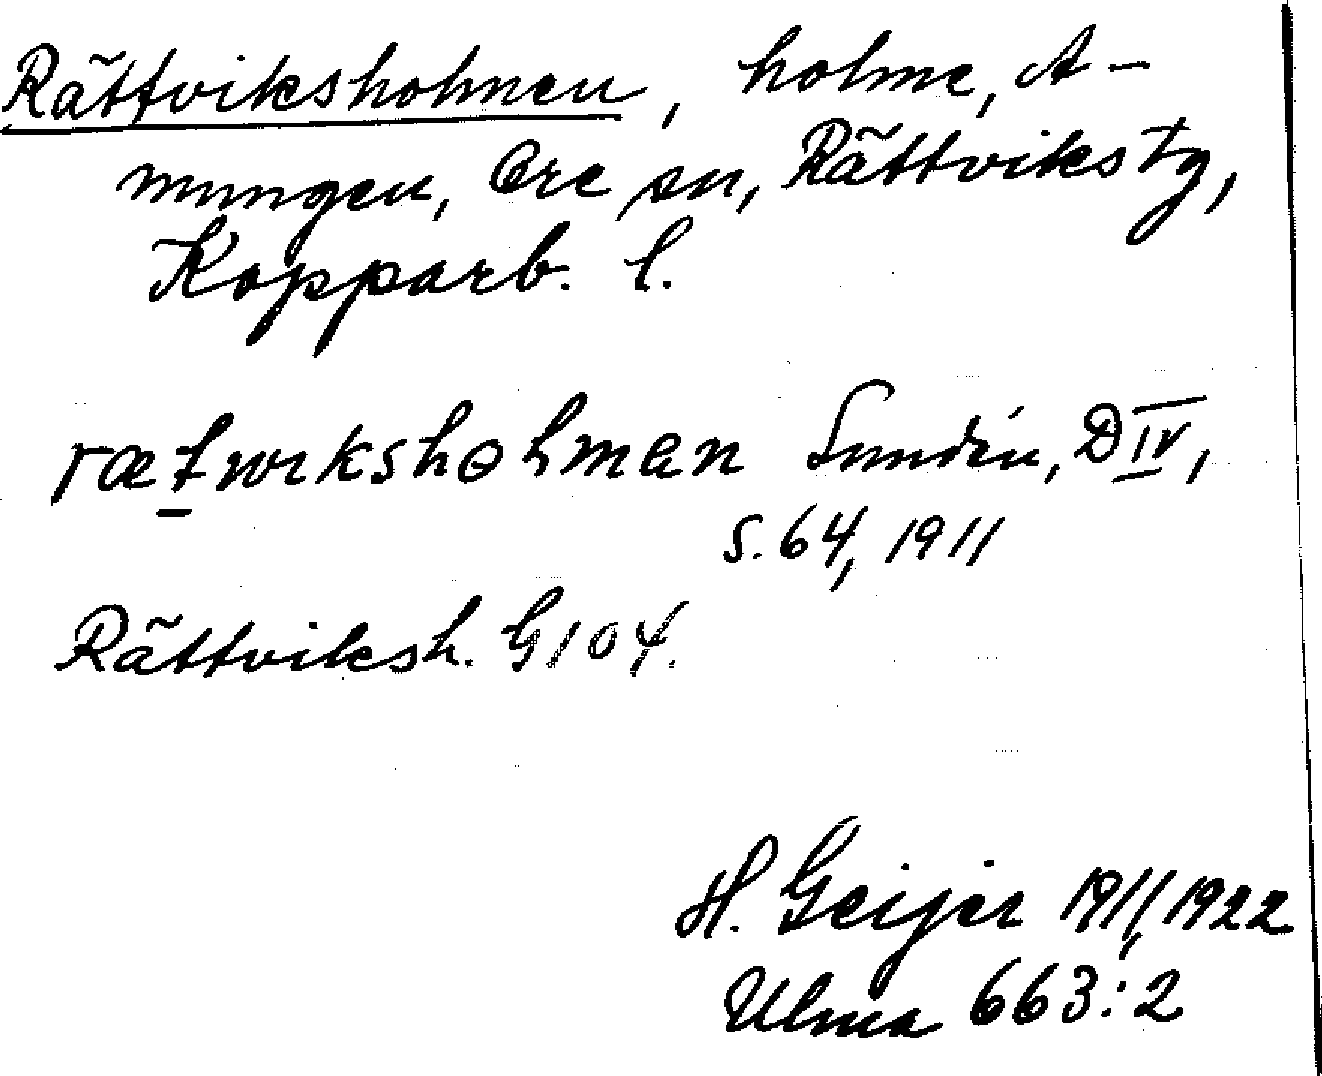 Rättviksholmen, holme, A-
mungen, Ore sn, Rättviks tg,
Kopparb. l.
rætwiksholmen Sundin, D IV,
s. 64, 1911
Rättviksh. G 104.
H. Geijer 1911, 1922
Ulma 663:2